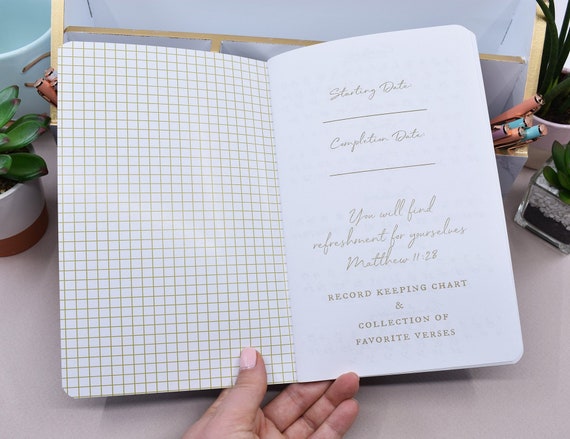 Starting Date
Completion Date
You will find
refreshment for yourselves
Matthew 11:28
RECORD KEEPING CHART
&
COLLECTION OF
FAVORITE VERSES